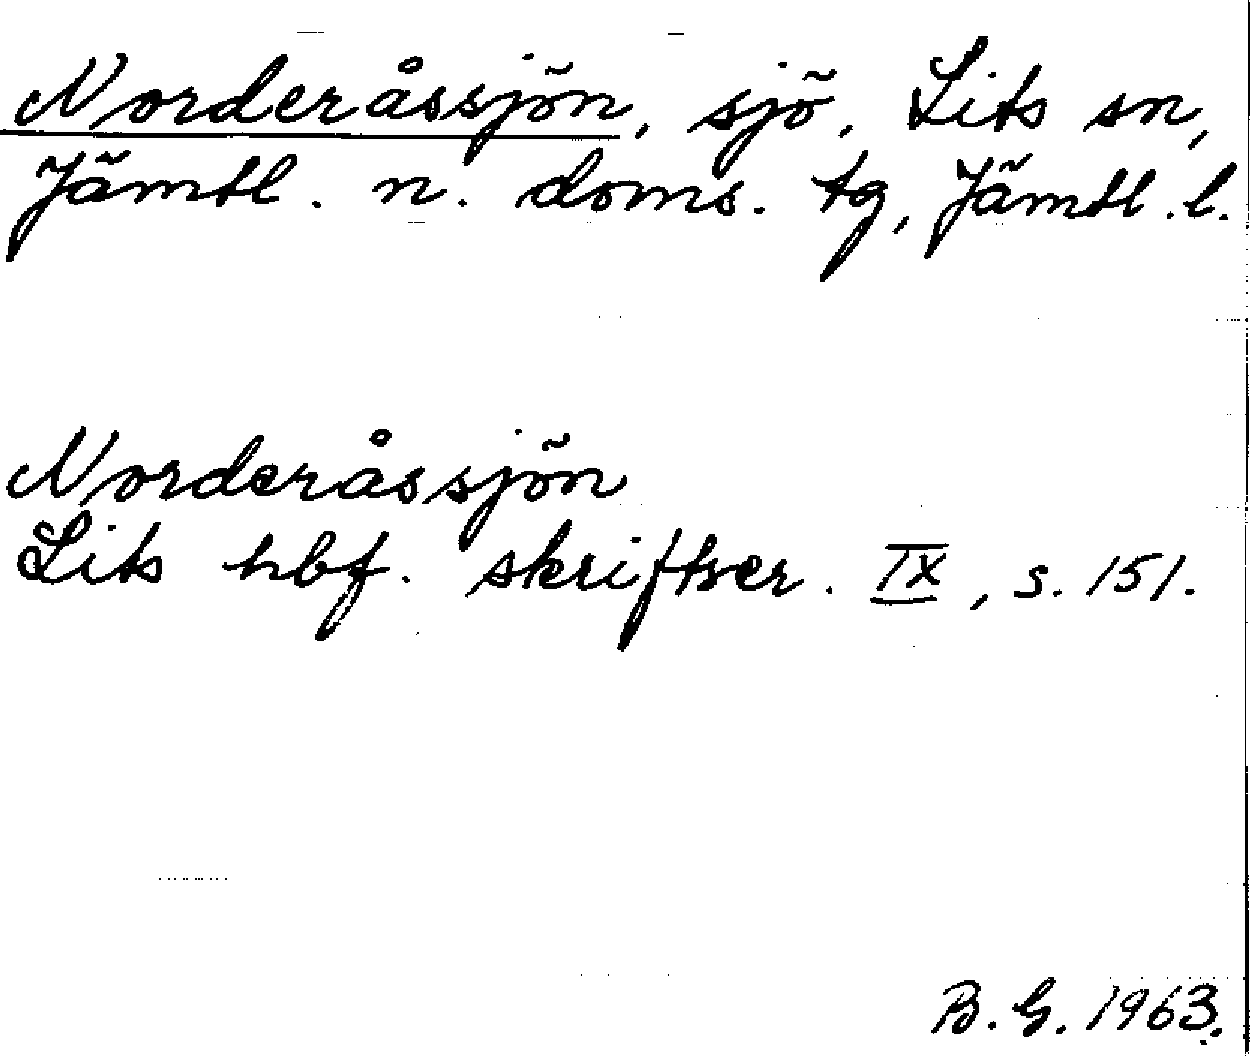 Norderåssjön, sjö, Lits sn,
Jämtl. n. doms. tg, Jämtl. l.
Norderåssjön
Lits hbf. skriftser. IX, s. 151.
B. G. 1963.